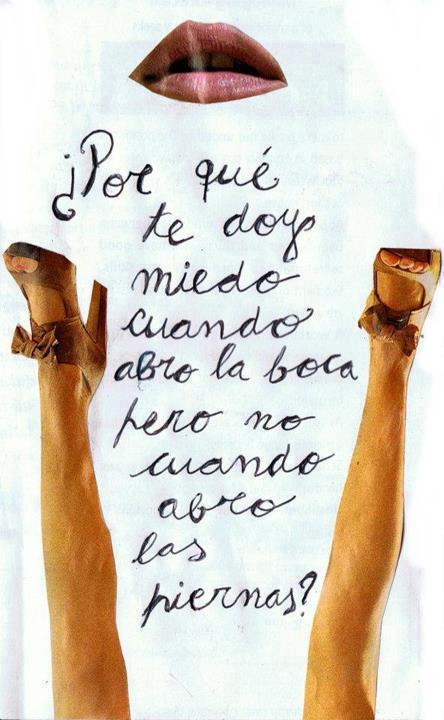 ¿Por qué
te doy
miedo
cuando
abro la boca
pero no
cuando
abro
las
piernas?